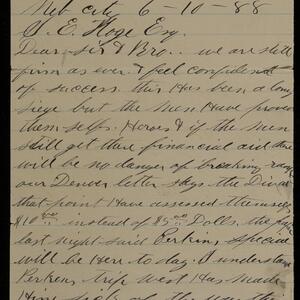 Neb city 6-10-88
S. E. Hoge Esq.
Dear Sir & Bro. we are still
firm as ever & feel confident
of success this Has been a long
siege but the Men Have proven
them selfs Heroes & if the men
still get there financial aid there
will be no danger of breaking ranks
our Denver letter says the Div at
that point Have assessed themselves
$10.00 instead of $5.00 Dolls. the
last night said Perkins special
will be Here to day. I understand
Perkins trip West Has Made
Him sick of the